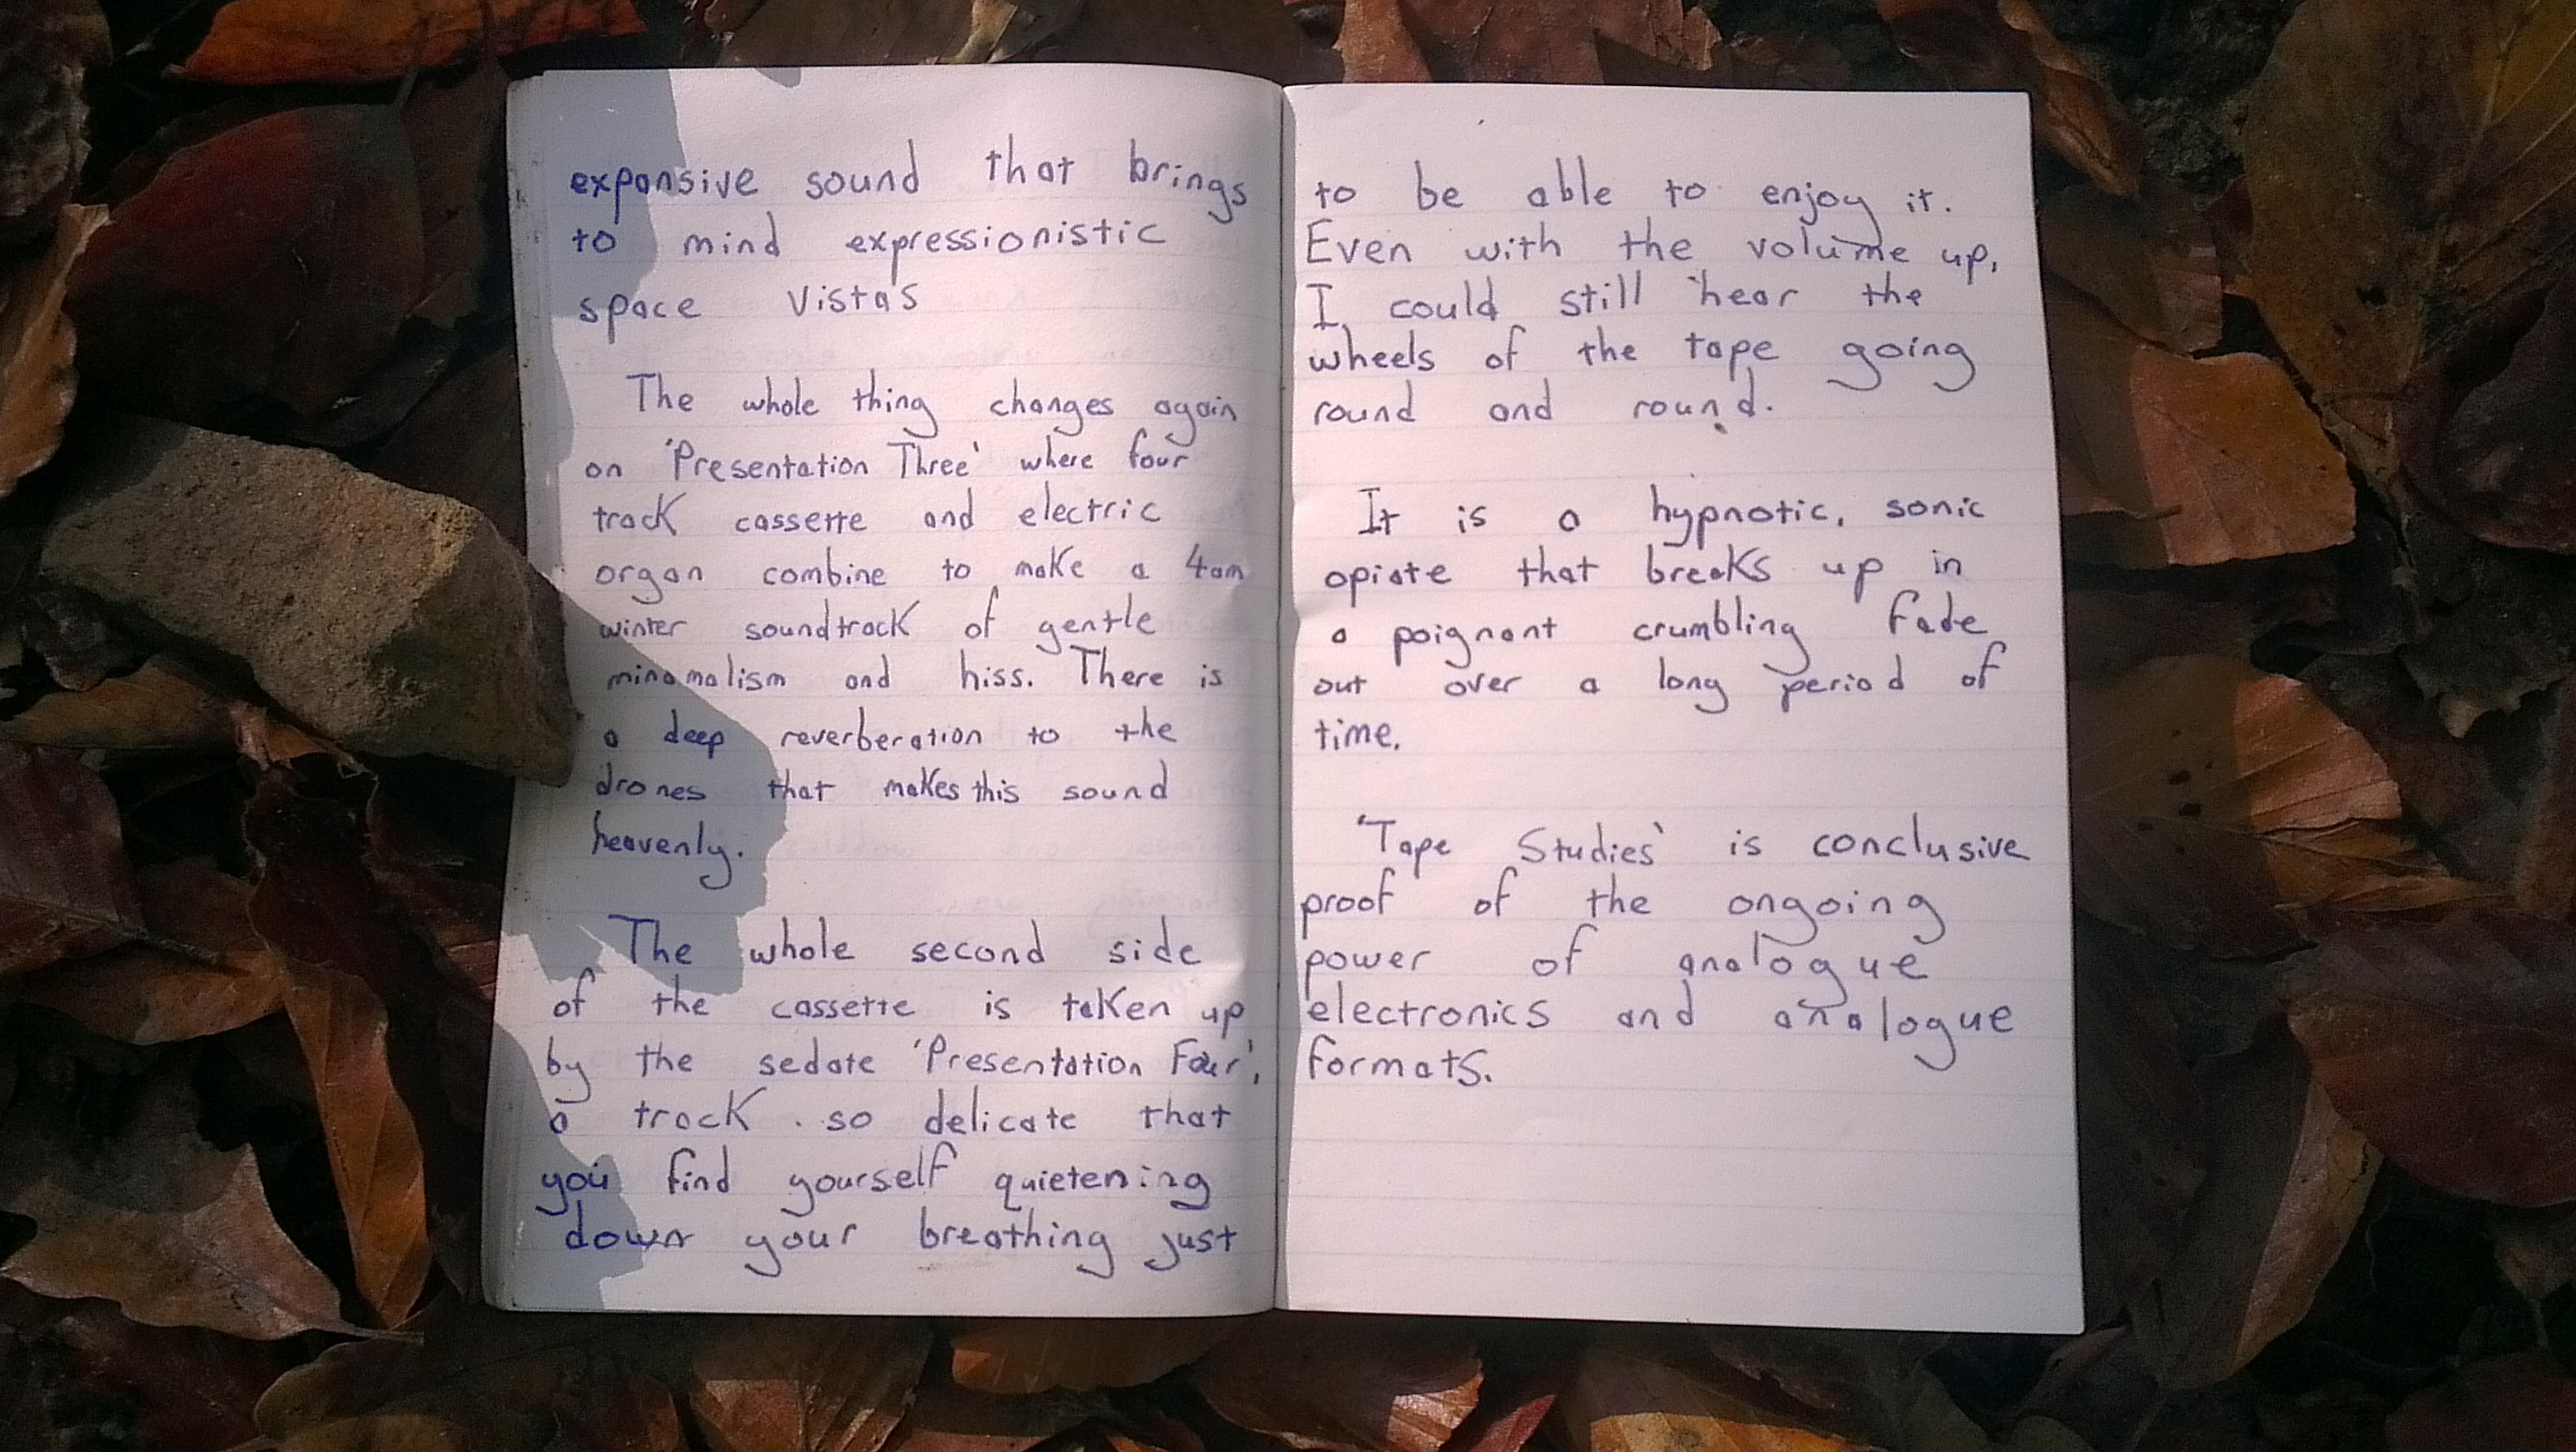 expansive sound that brings
to mind expressionistic
space vista's
The whole thing changes again
on 'Presentation Three' where four
track cassette and electric
organ combine to make a 4am
winter soundtrack of gentle
minamalism and hiss. There is
a deep reverberation to the
drones that makes this sound
heavenly.
The whole second side
of the cassette is taken up
by the sedate 'Presentation Four',
a track so delicate that
you find yourself quietening
down your breathing just
to be able to enjoy it.
Even with the volume up,
I could still hear the
wheels of the tape going
round and round.
It is a hypnotic, sonic
opiate that breaks up in
a poignant crumbling fade
out over a long period of
time.
'Tape Studies' is conclusive
proof of the ongoing
power of analogue
electronics and analogue
formats.